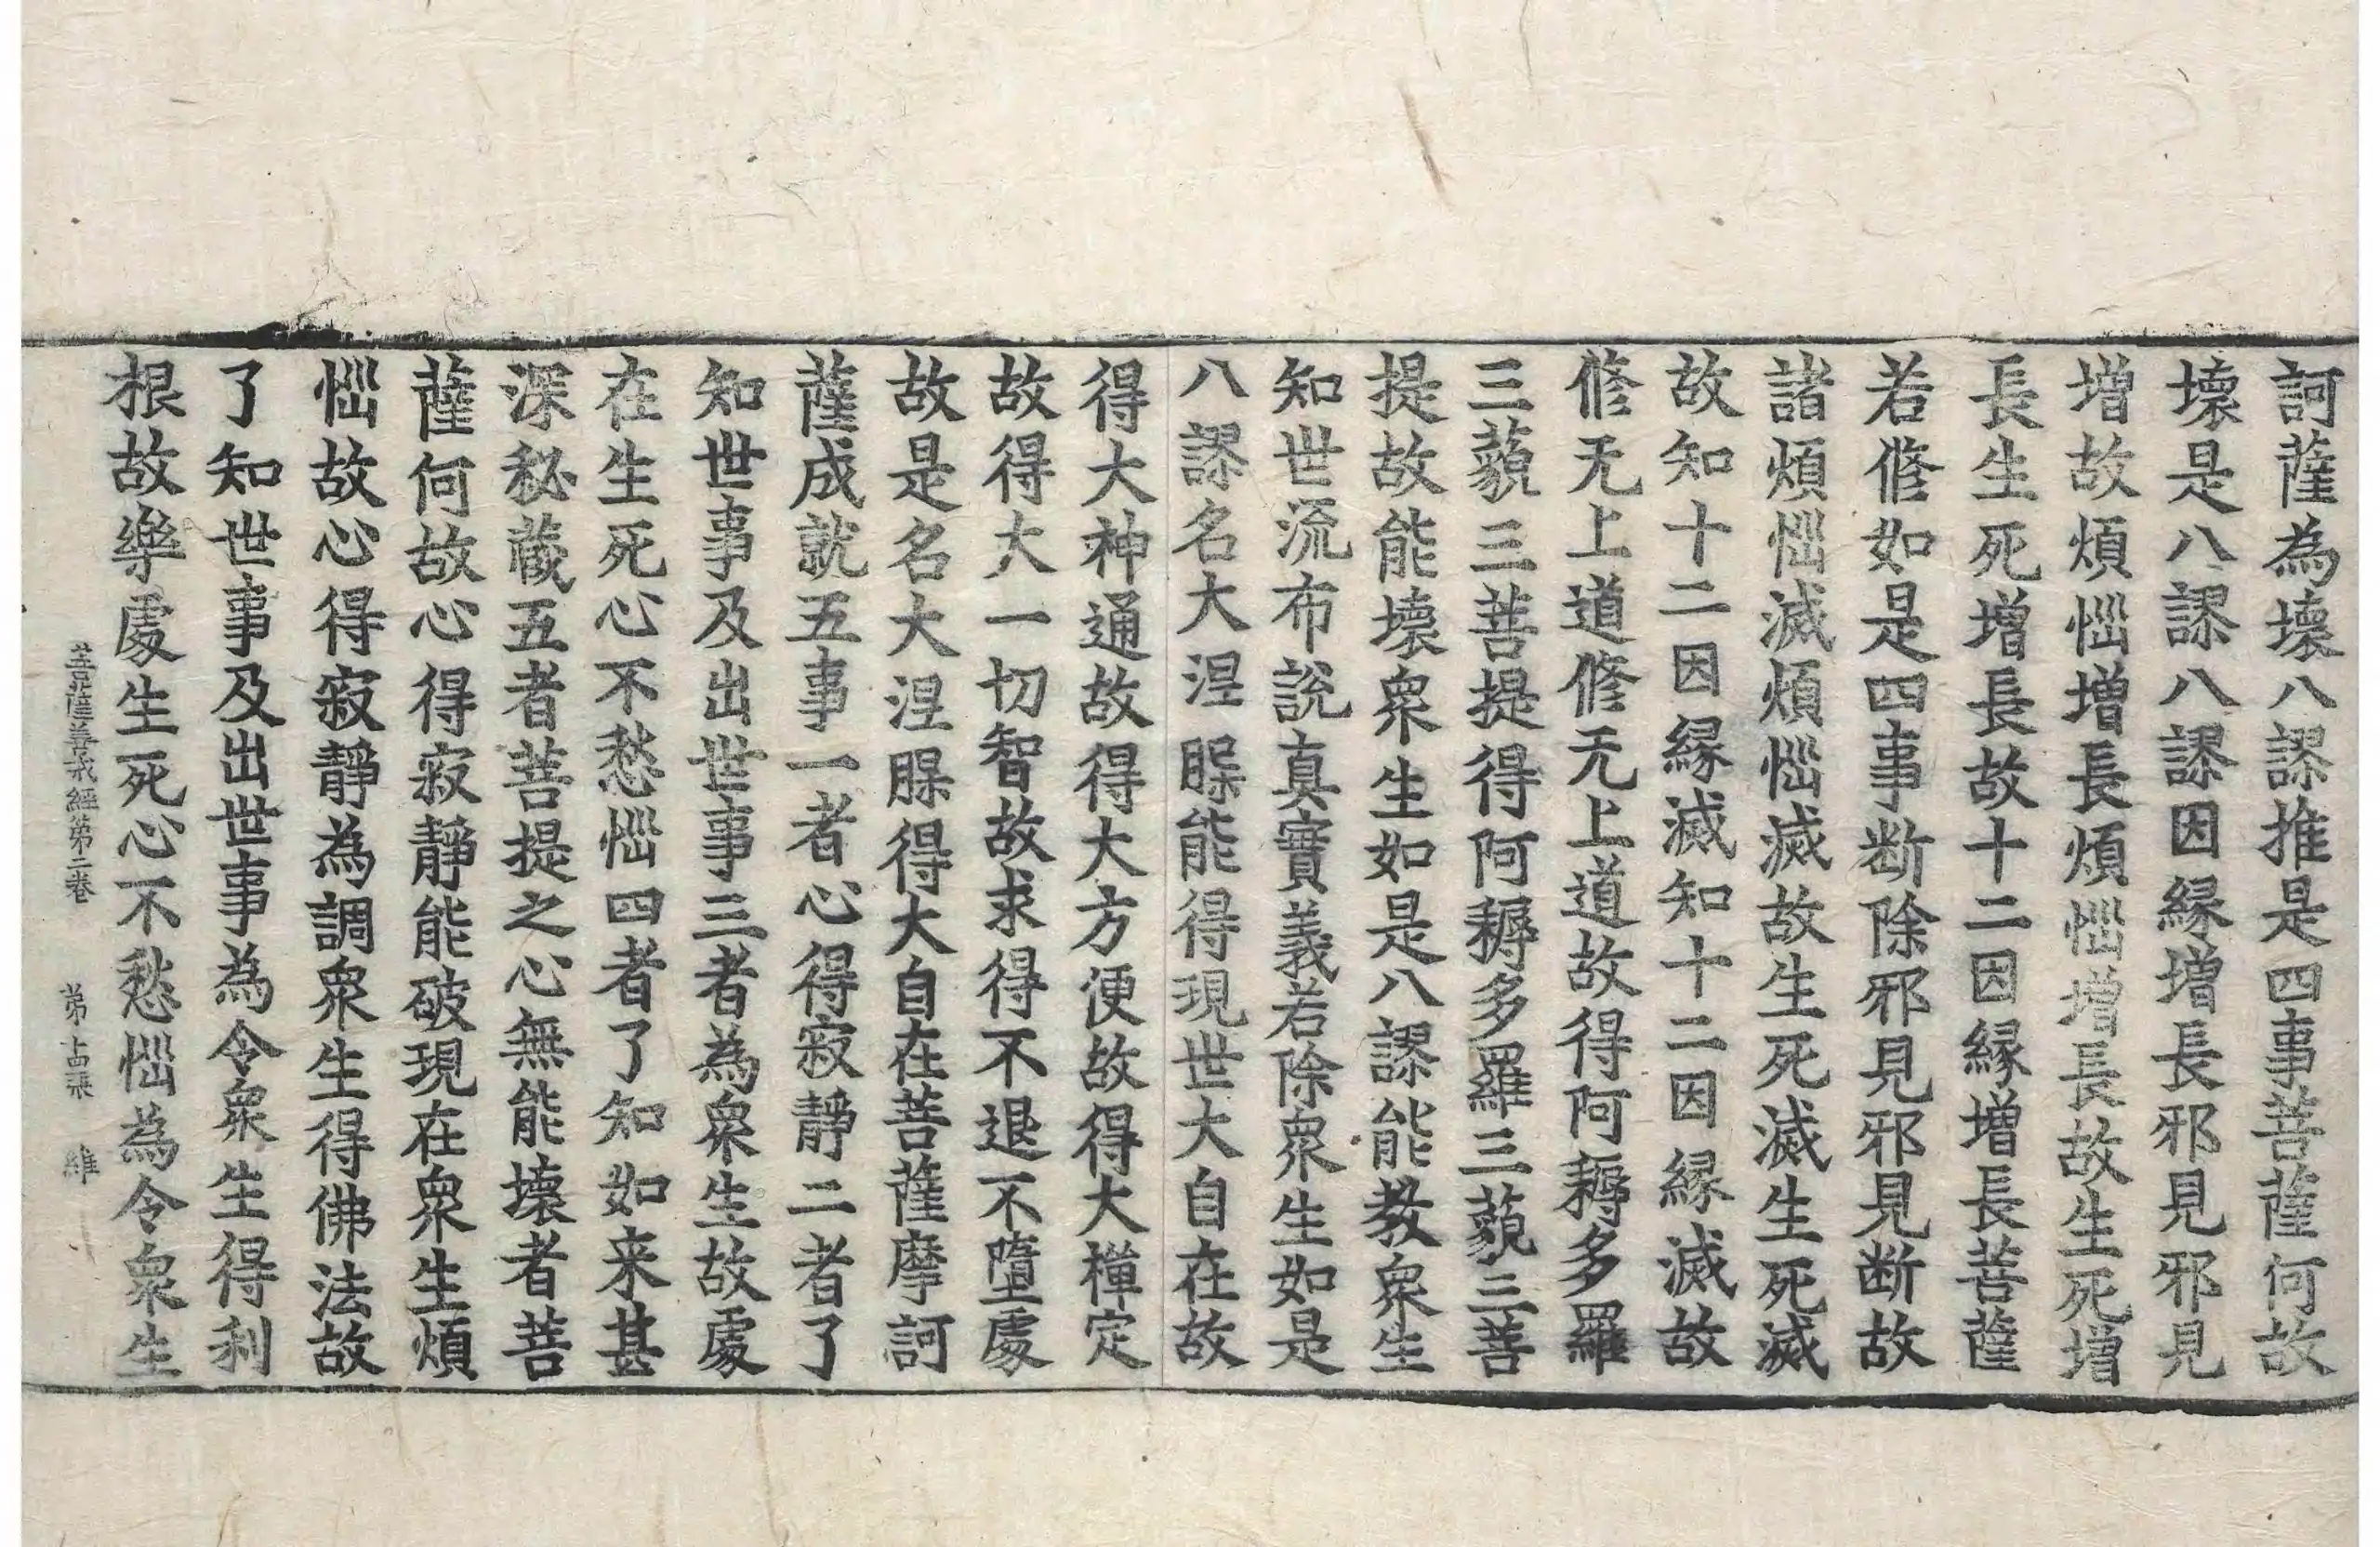 訶薩為壞八謬推是四事菩薩何故
壞是八謬八謬因縁増長邪見邪見
増故煩惱増長煩惱増長故生死増
長生死増長故十二因縁増長菩薩
若修如是四事断除邪見邪見断故
諸煩惱滅煩惱滅故生死滅生死滅
故知十二因縁滅知十二因縁滅故
修无上道修无上道故得阿耨多羅
三藐三菩提得阿耨多羅三藐三菩
提故能壞衆生如是八謬能教衆生
知世流布説真實義若除衆生如是
八謬名大涅槃能得現世大自在故
得大神通故得大方便故得大禪定
故得大一切智故求得不退不墮處
故是名大涅槃得大自在菩薩摩訶
薩成就五事一者心得寂靜二者了
知世事及出世事三者為衆生故處
在生死心不愁惱四者了知如来甚
深秘蔵五者菩提之心無能壞者菩
薩何故心得寂靜能破現在衆生煩
惱故心得寂靜為調衆生得佛法故
了知世事及出世事為令衆生得利
根故樂處生死心不愁惱為令衆生
菩薩善戒經第二卷　第十四張　維